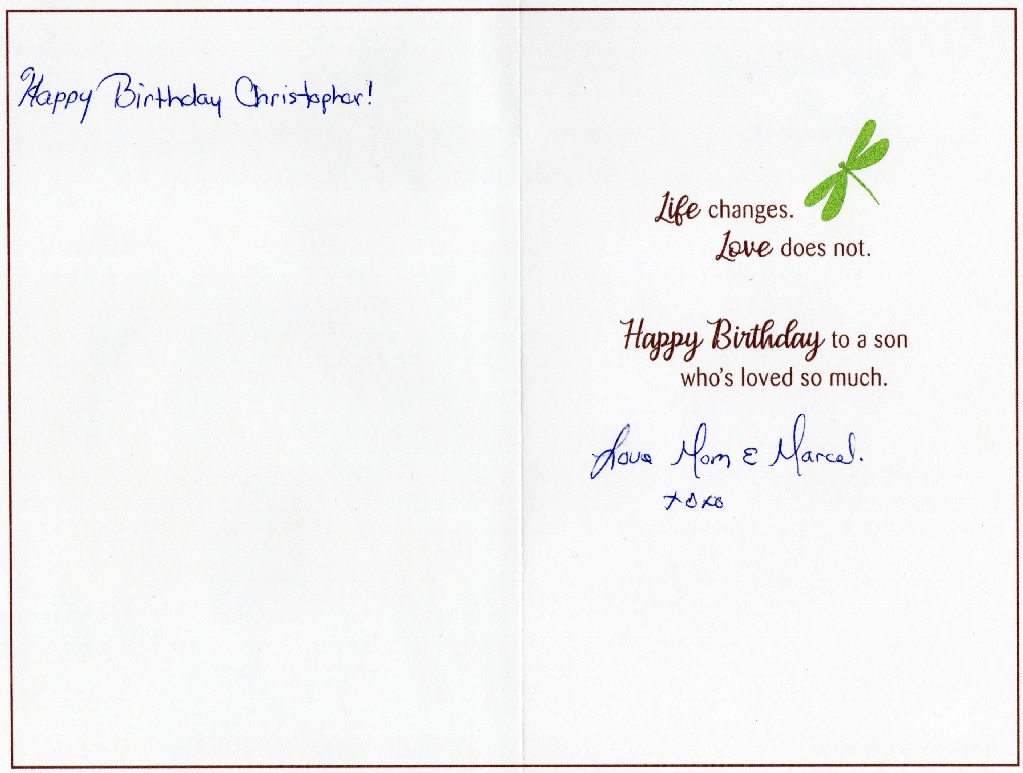 Happy Birthday Christopher!
Life changes.
Love does not.
Happy Birthday to a son
who's loved so much.
Love Mom & Marcel.
xoxo